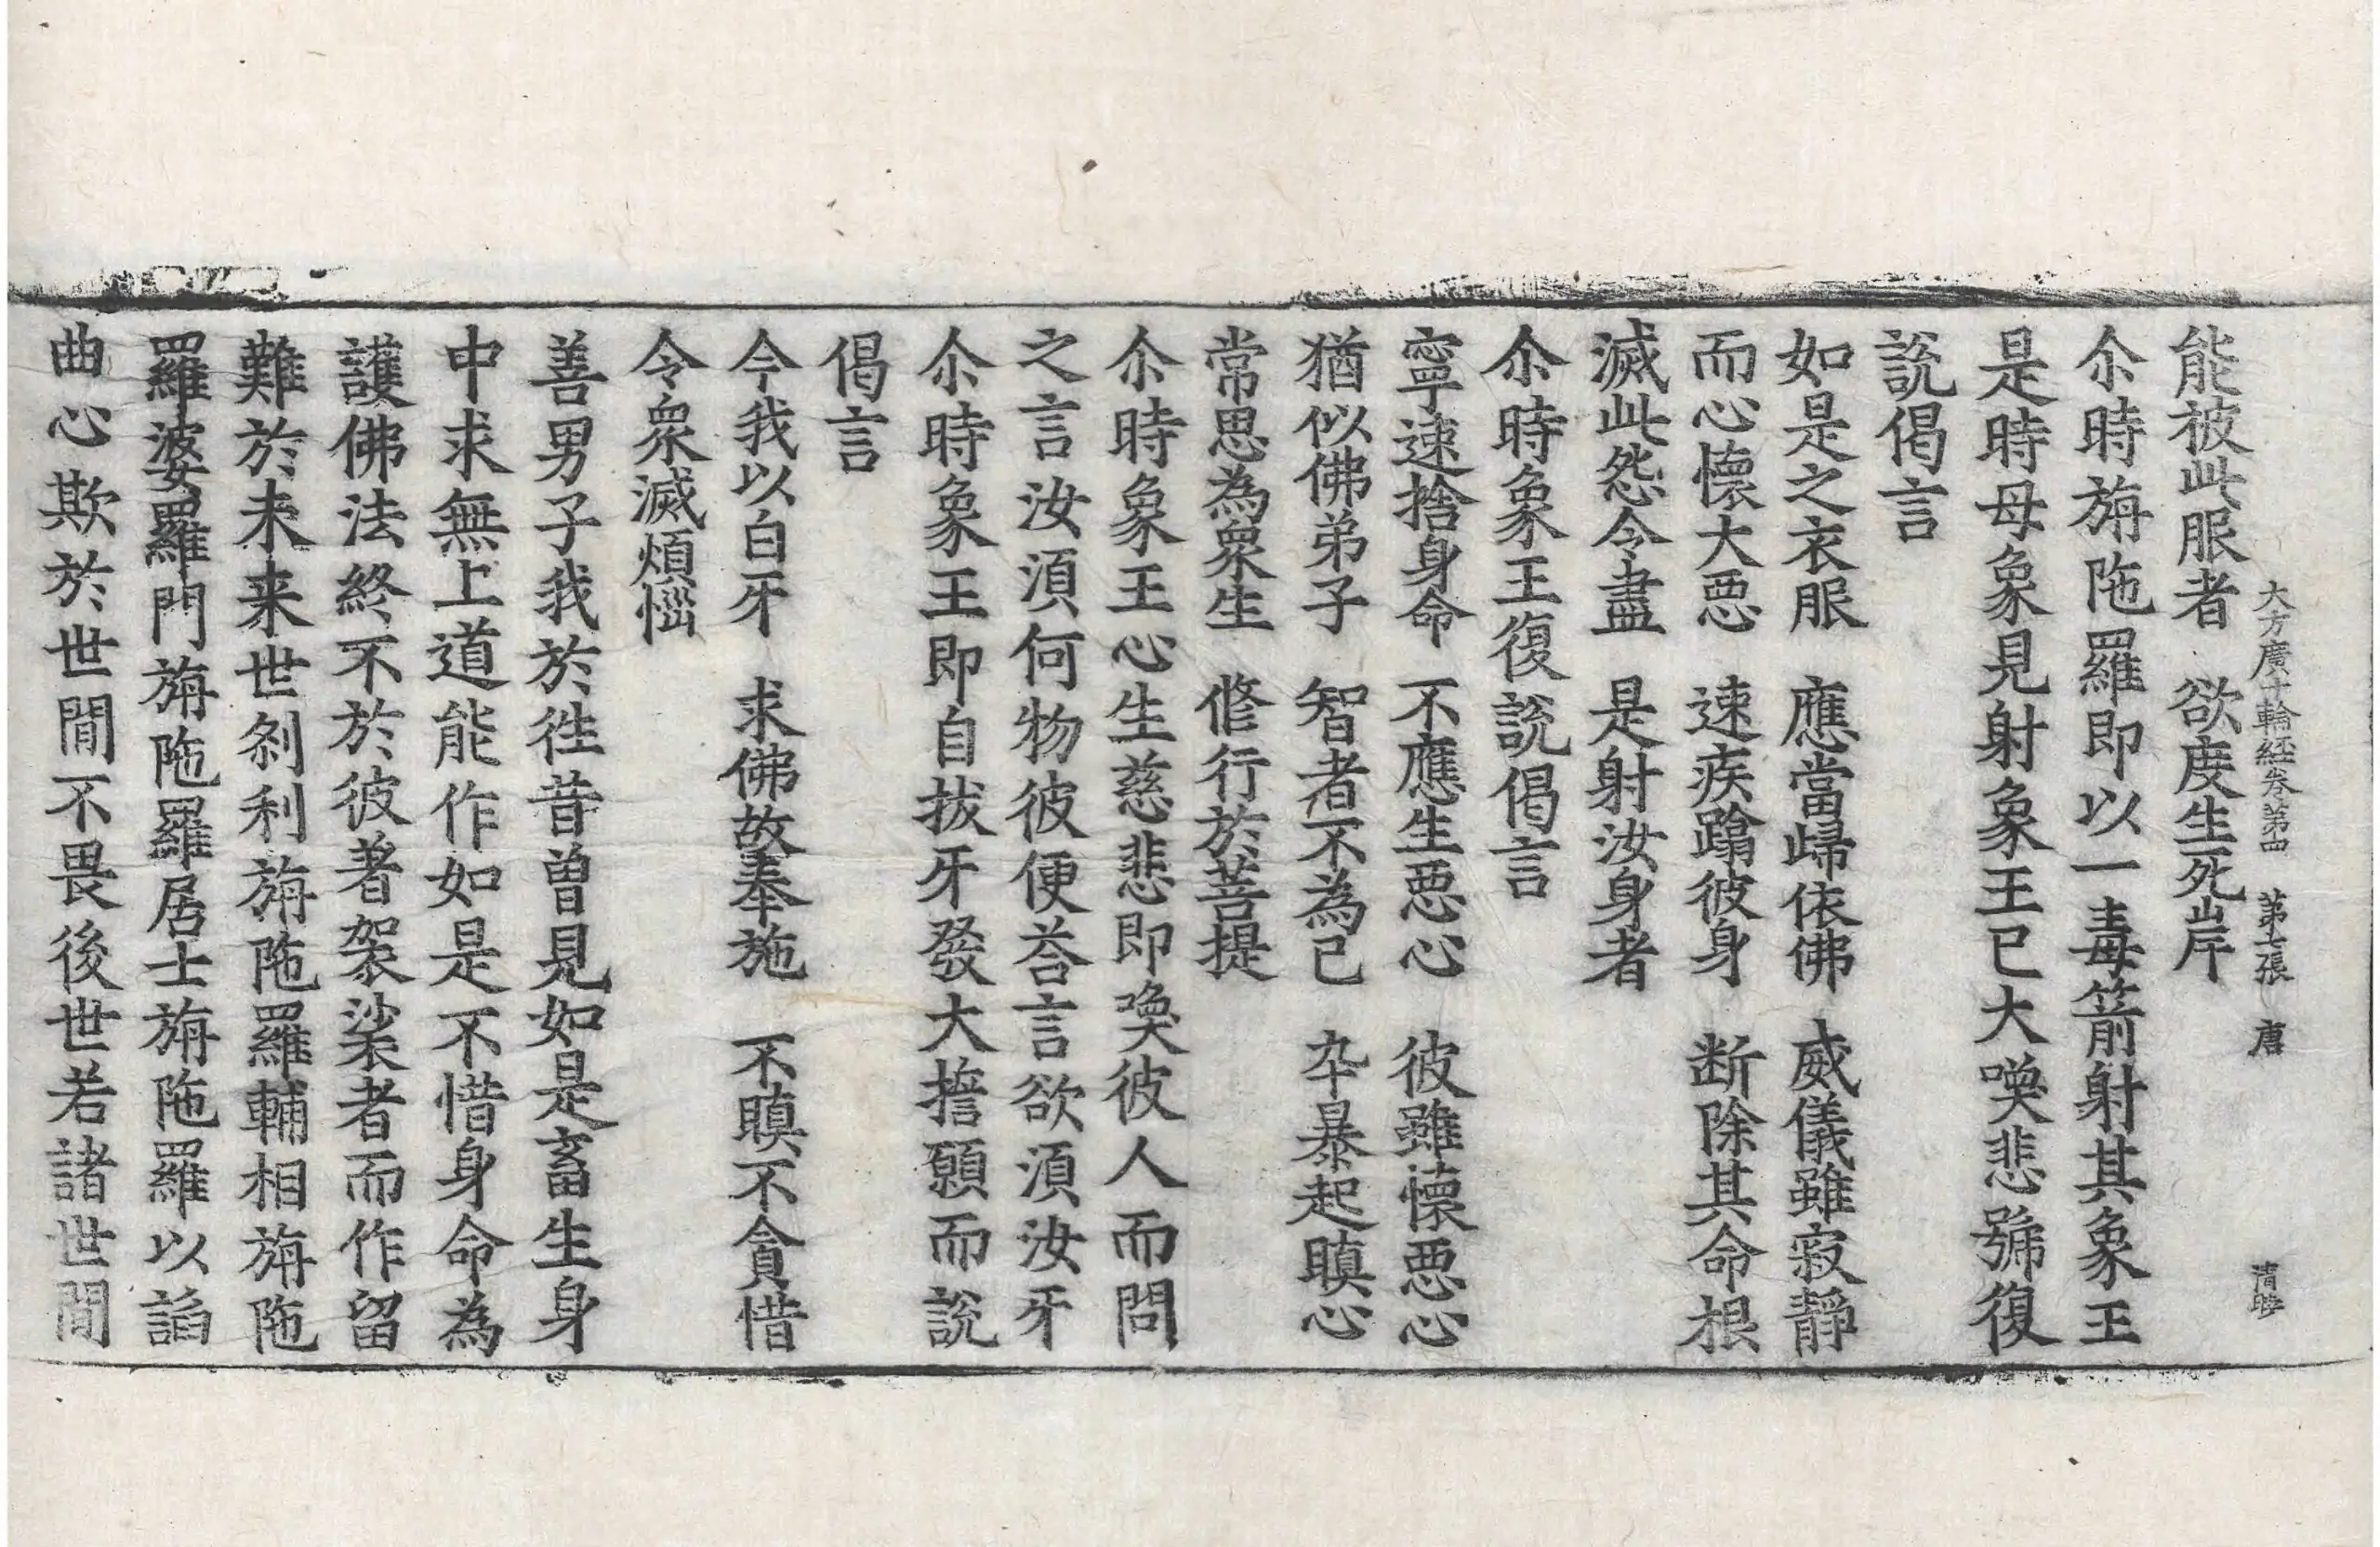 大方廣十輪經卷第四　第七張　唐
能被此服者　欲度生死岸
尒時旃陁羅即以一毒箭射其象王
是時母象見射象王已大喚悲號復
說偈言
如是之衣服　應當歸依佛　威儀雖寂靜
而心懷大惡　速疾蹋彼身　断除其命根
滅此怨令盡　是射汝身者
尒時象王復說偈言
寧速捨身命　不應生惡心　彼雖懷惡心
猶似佛弟子　智者不為已　卒暴起瞋心
常思為衆生　修行於菩提
尒時象王心生慈悲即喚彼人而問
之言汝湏何物彼便荅言欲湏汝牙
尒時象王即自拔牙發大擔願而說
偈言
今我以白牙　求佛故奉施　不瞋不貪惜
令衆滅煩惱
善男子我於徃昔曾見如是畜生身
中求無上道能作如是不惜身命為
護佛法終不於彼著袈裟者而作留
難於未来世刹利旃陁羅輔相旃陁
羅婆羅門旃陁羅居士旃陁羅以諂
曲心欺於世間不畏後世若諸世間